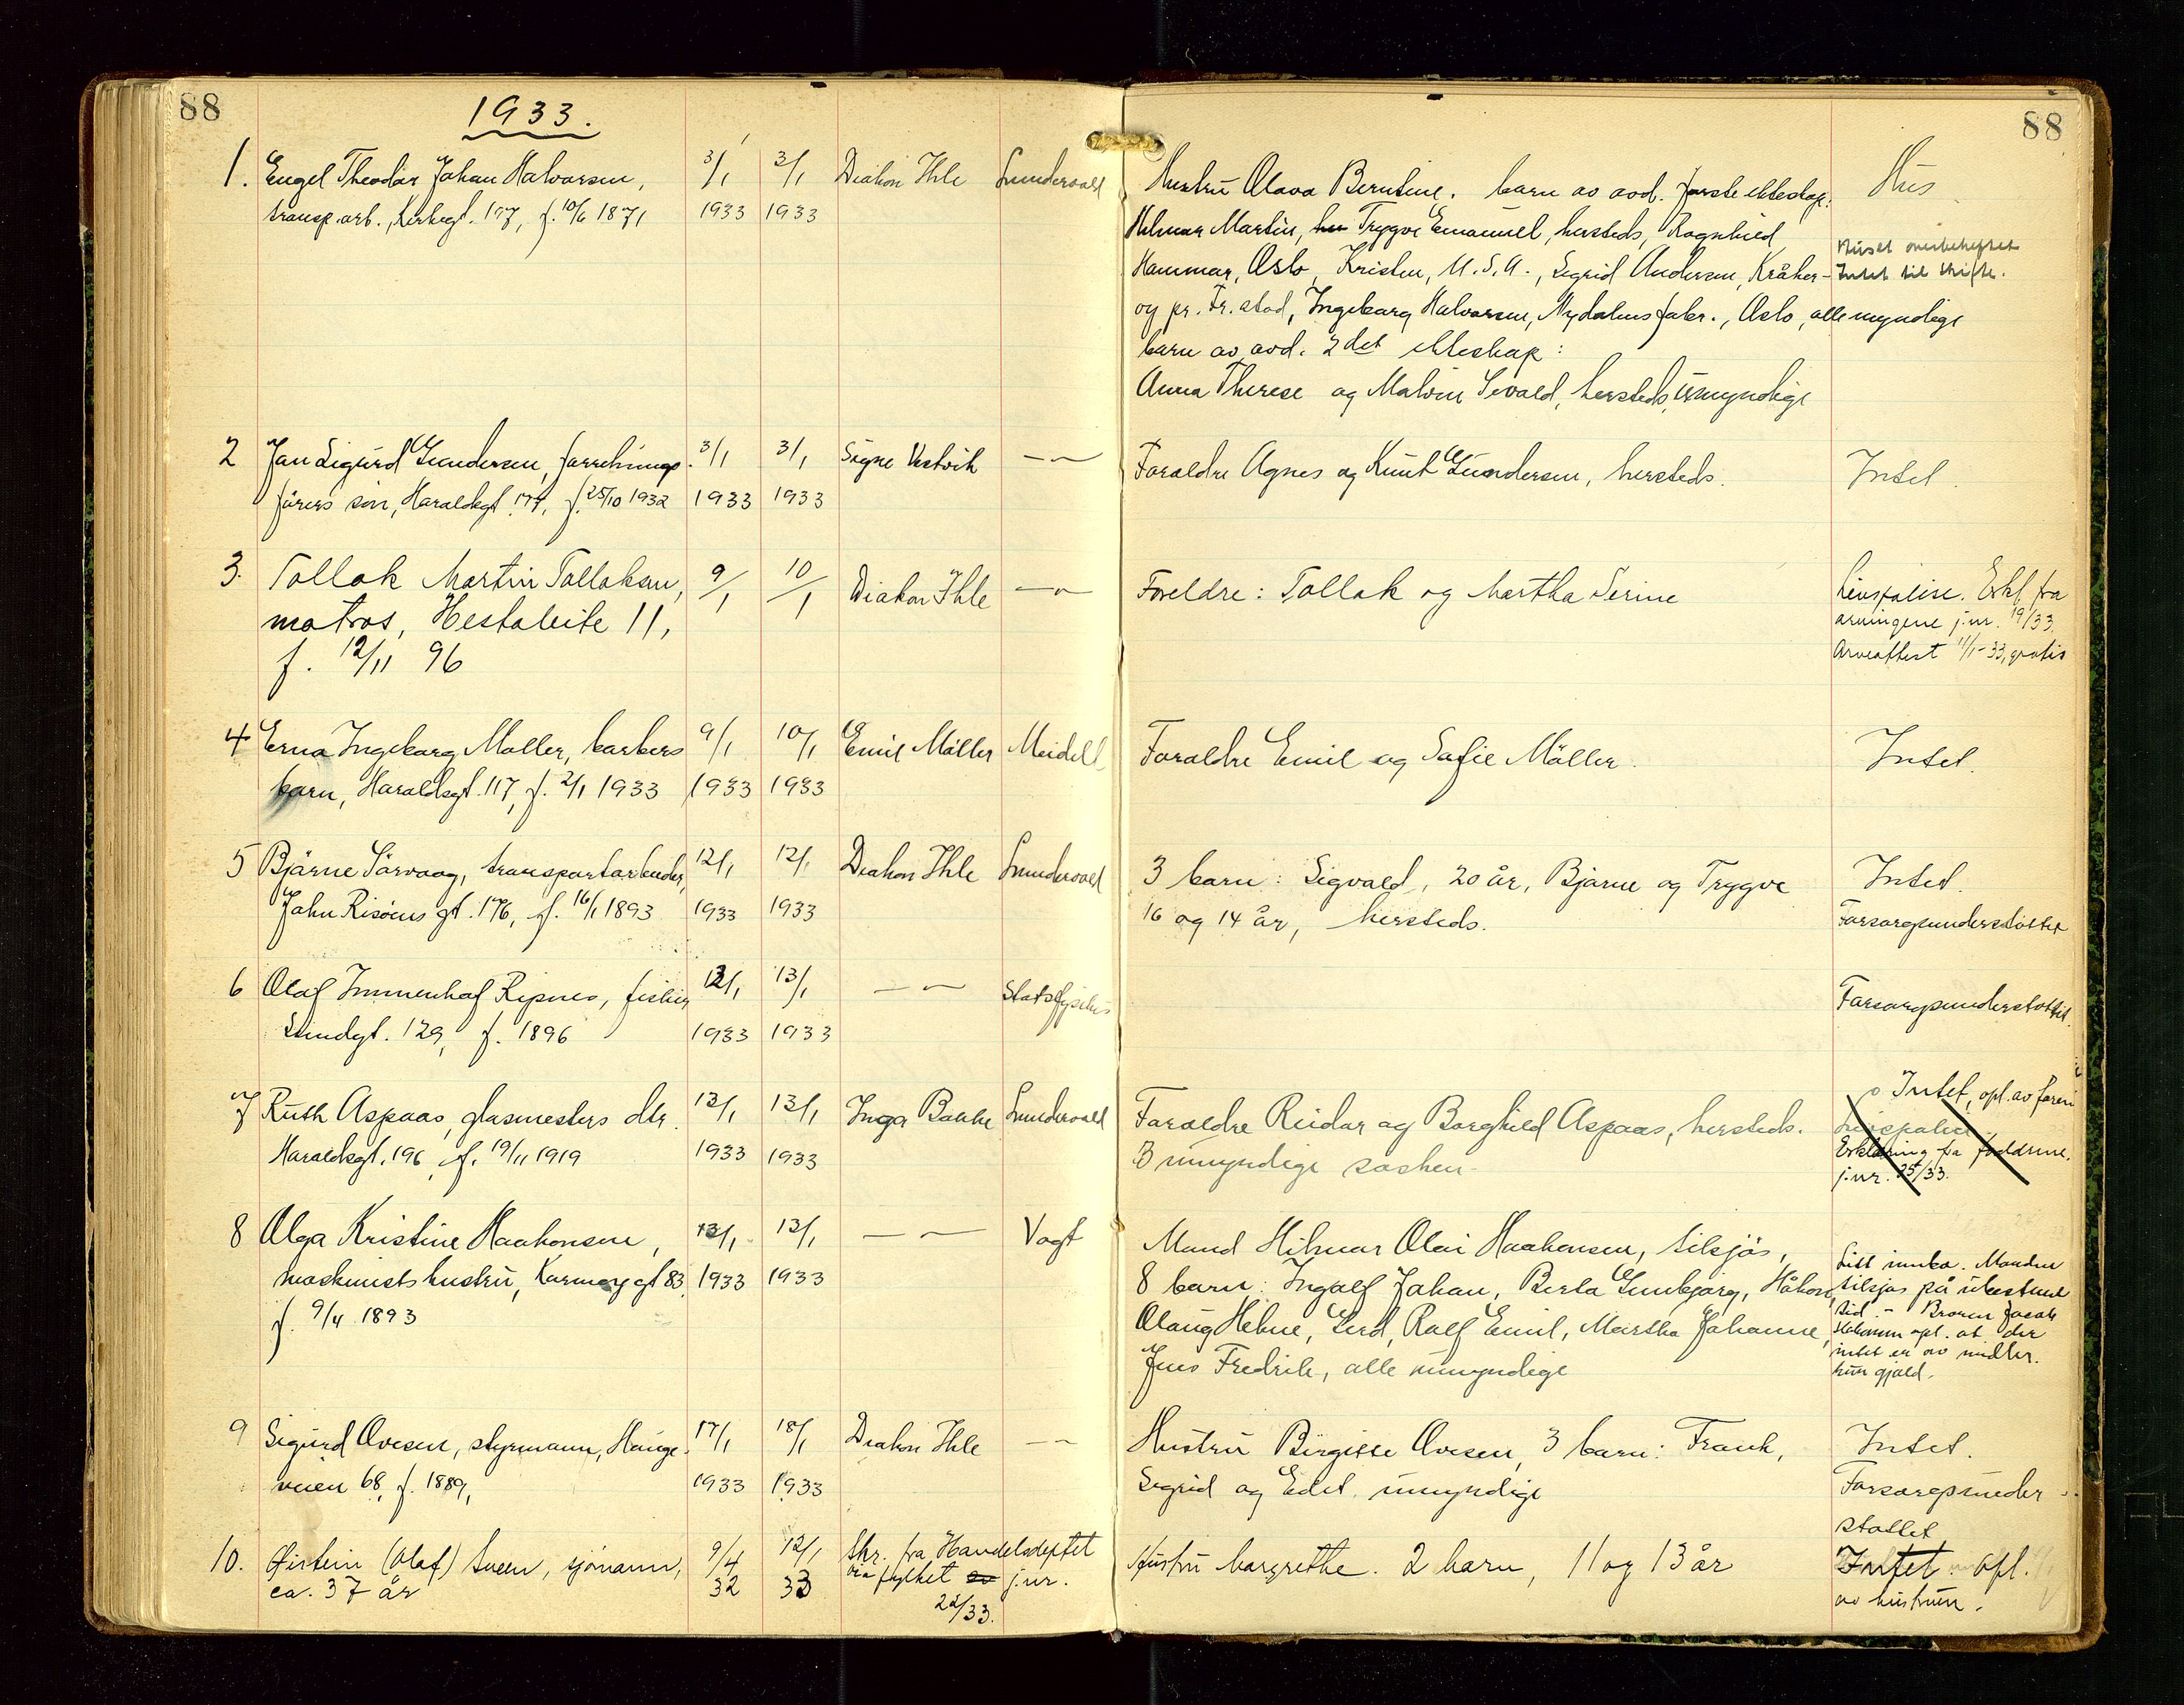 88
1933.
88
1. Engel Theodor Johan Halvorsen, 3/1 3/1 Diakon Ihle Sundervall Hustru Olava Berntine. barn av avd. første ekteskap: Hus
transp.arb., Kirkegt. 197, f. 10/6 1871 1933 1933 Hilmar Martin, Trygve Emanuel, hersteds, Ragnhild
Huset overbeheftet
Hammar, Oslo, Kristen, U.S.A., Sigrid Andersen, Kråker- Intet til skifte.
øy pr. Fr.stad, Ingeborg Halvorsen, Nydalens fabr., Oslo, alle myndige
barn av avd. 2det ekteskap:
Anna Therese og Malvin Sevald, hersteds, umyndige
2 Jan Sigurd Gundersen, forretnings- 3/1 3/1 Signe Vestvik — " — Foraldre Agnes og Knut Gundersen, hersteds. Intet.
førers søn, Haraldsgt. 177, f. 25/10 1932 1933 1933
3. Tollak Martin Tollaksen, 9/1 10/1 Diakon Ihle — " — Foreldre: Tollak og Martha Serine Livspolise. Erkl. fra
matros, Hestaleite 11, arvingene j.nr. 19/33.
f. 12/11 96 Arveattest 11/1-33, gratis
4 Erna Ingeborg Møller, barbers 9/1 10/1 Emil Møller Meidell Foraldre Emil og Sofie Møller. Intet.
barn, Haraldsgt. 117, f. 2/1 1933 1933 1933
5 Bjarne Sørvaag, transportarbeider, 12/1 12/1 Diakon Ihle Sundervall 3 barn: Sigvald, 20 år, Bjarne og Trygve Intet.
John Risøens gt. 176, f. 16/1 1893 1933 1933 16 og 14 år, hersteds. Forsorgsunderstøttet
6 Olaf Immenhof Ripnes, fisker, 12/1 13/1 — " — Statsfysikus Forsorgsunderstøttet.
Sundgt. 129, f. 1896 1933 1933
7 Ruth Aspaas, glasmesters dtr. 13/1 13/1 Inga Bakke Sundervall Foraldre Reidar og Borghild Aspaas, hersteds. Intet, opl. av foreni
Haraldsgt. 196, f. 19/11 1919 1933 1933 3 umyndige søsken. Livspolise
Erklæring fra foreldrene.
j.nr. 25/33.
8 Olga Kristine Haakonsen, 13/1 13/1 — " — Vogt Mand Hilmar Olai Haakonsen, tilsjøs, Litt innbo. Manden
maskinists hustru, Karmøygt 83, 1933 1933 8 barn: Ingolf Johan, Berta Gunbjørg, Håkon, tilsjøs på ubestemt
f. 9/4 1893 Olaug Helene, Gerd, Rolf Emil, Martha Johanne, tid - Broren Jacob
Jens Fredrik, alle umyndige Hakonsen opl. at der
intet er av midler.
kun gjæld.
9 Sigurd Ovesen, styrmann, Hauge- 17/1 18/1 Diakon Ihle — " — Hustru Birgitte Ovesen, 3 barn: Frank, Intet.
veien 68, f. 1889, 1933 1933 Sigrid og Edit, umyndige Forsorgsunder-
støttet
10. Øistein (Olaf) Sveen, sjømann, 9/4 12/1 Skr. fra Handelsdeptet Hustru Margrethe. 2 barn, 11 og 13 år Intet. Opl.
ca. 37 år 32 33 via fylket av j.nr. av hustruen.
22/33.